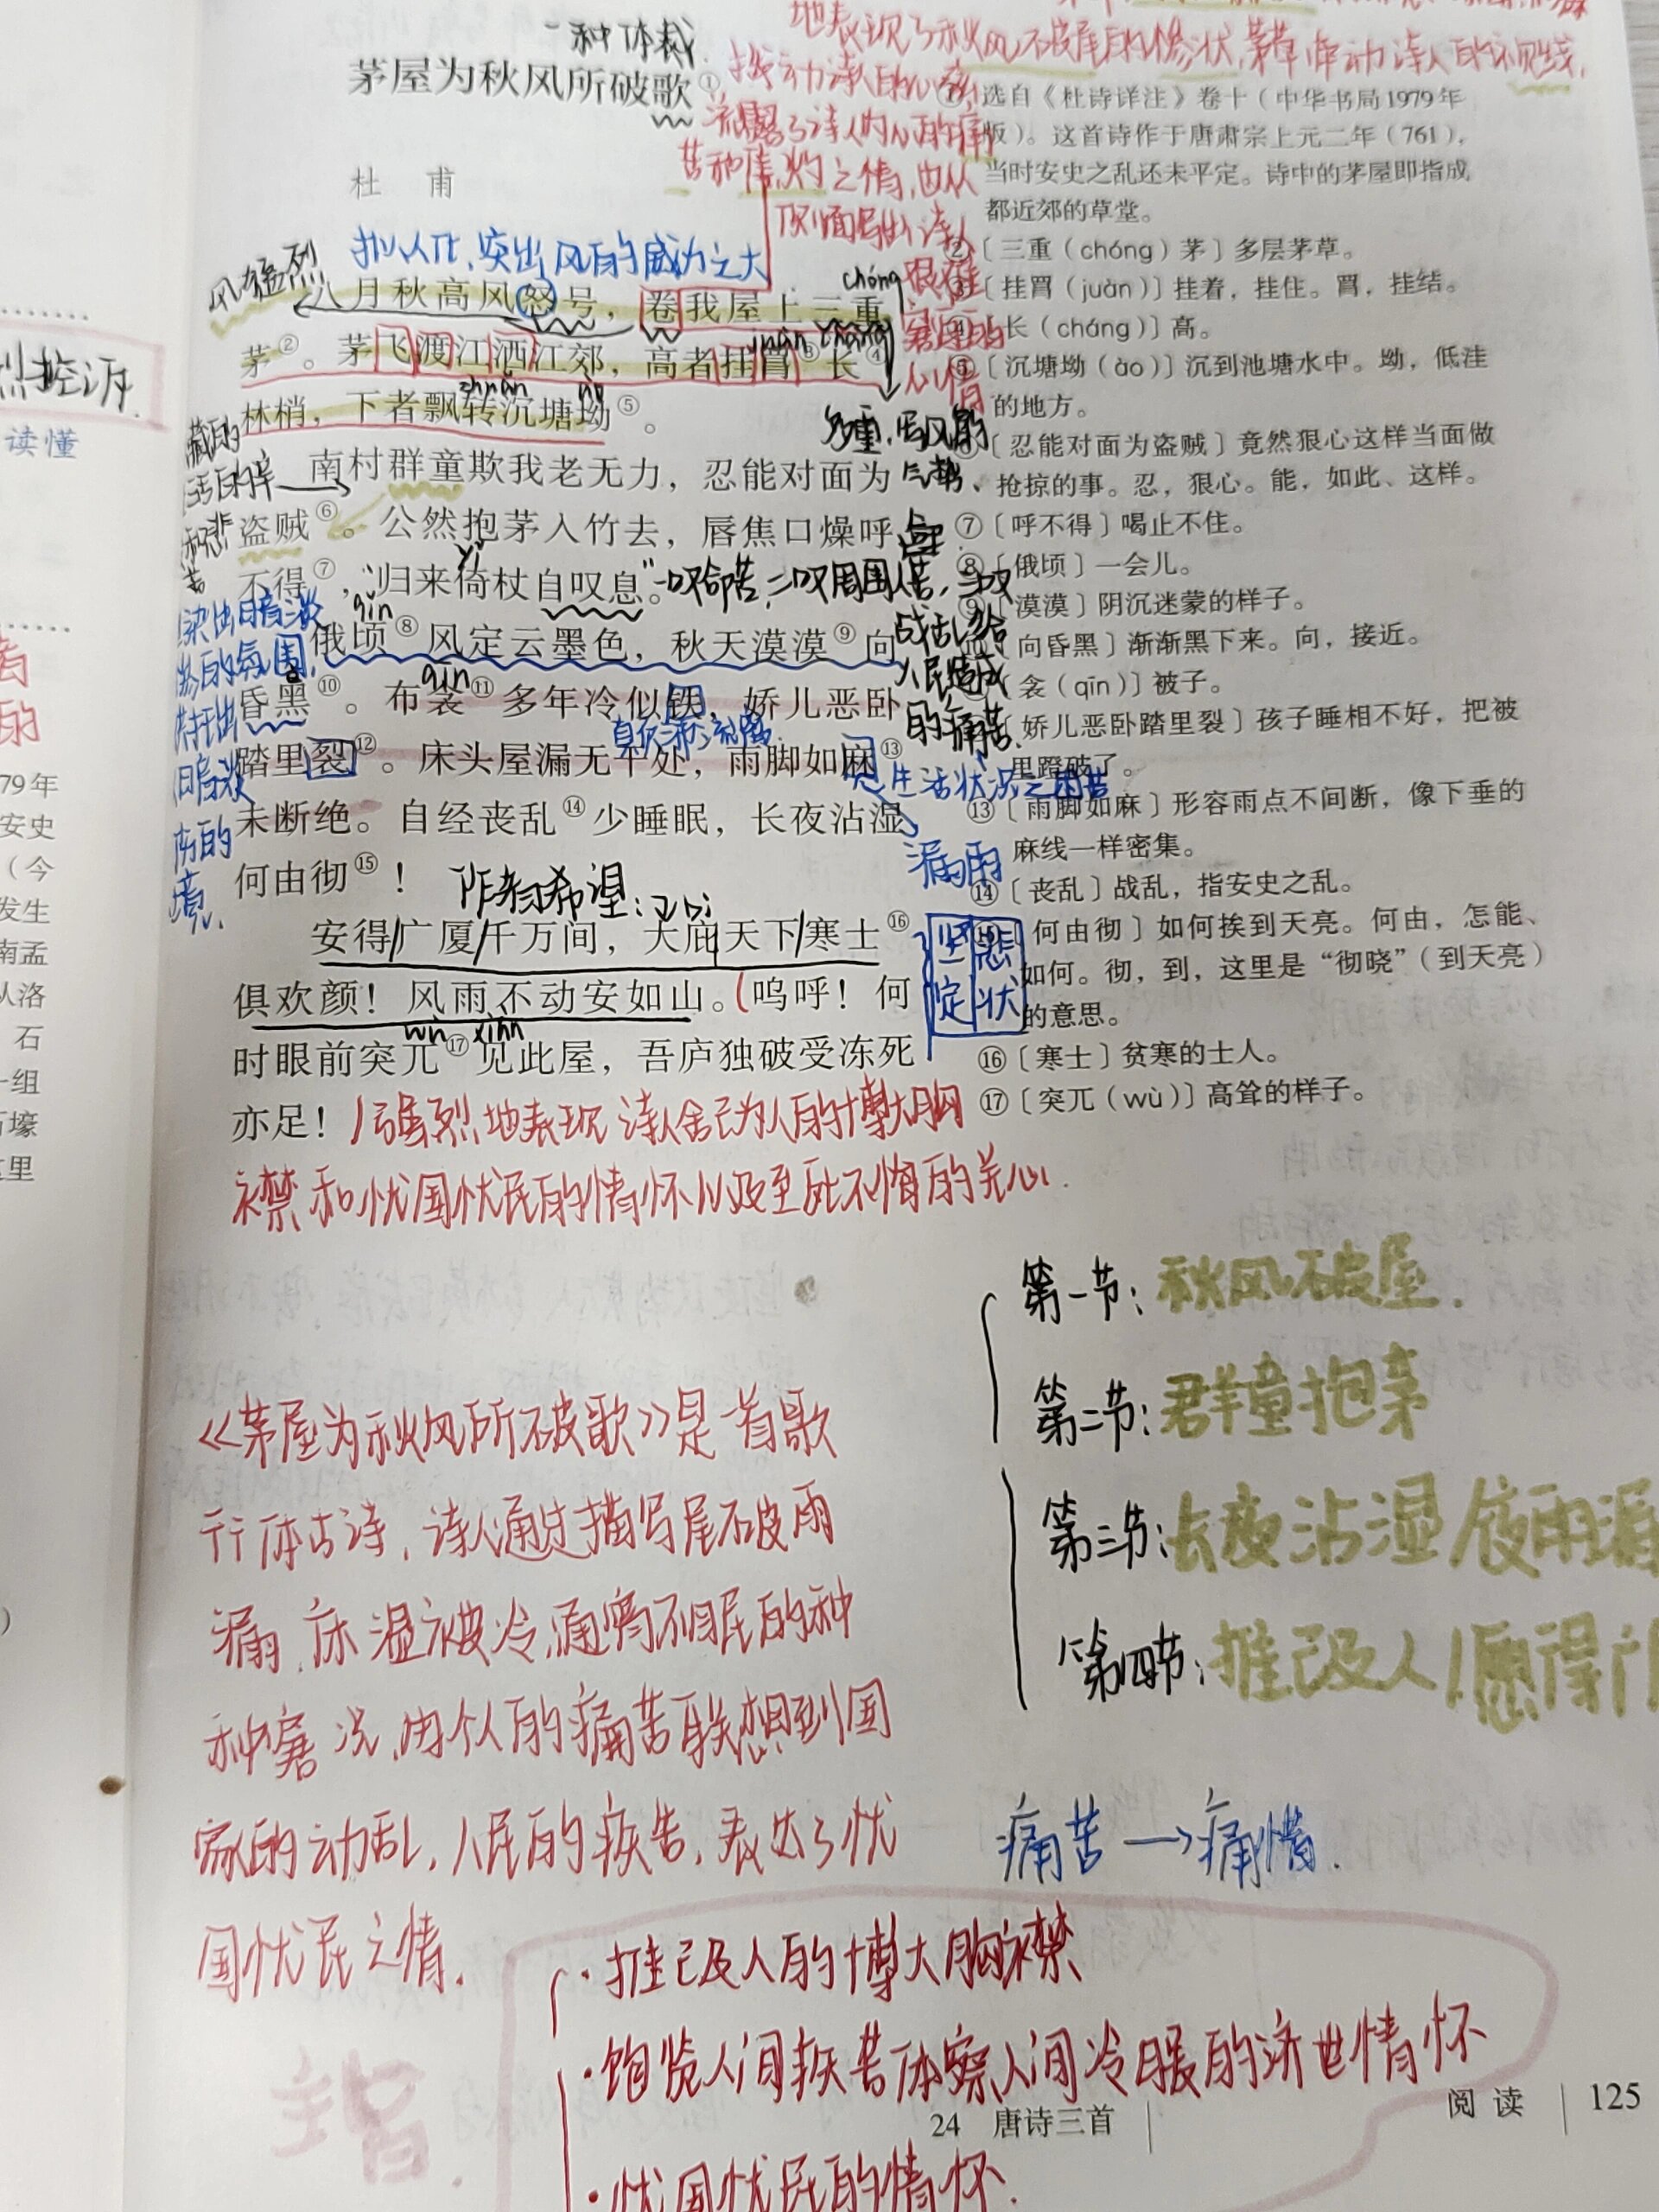 一种体裁
茅屋为秋风所破歌①
杜 甫
地表现了秋风破屋的惨状,茅草牵动诗人的视线,
拨动诗人的心弦,
流露了诗人的心的痛
苦和焦灼之情,也从
侧面写出诗人
很难
心情
拟人化,突出风的威力之大
风猛烈
chóng
八月秋高风怒号,卷我屋上三重
juàn cháng
茅②。茅飞渡江洒江郊,高者挂罥③长④
zhuǎn ào
林梢,下者飘转沉塘坳⑤。
多重,写风的
气势、
南村群童欺我老无力,忍能对面为
盗贼⑥。公然抱茅入竹去,唇焦口燥呼
yǐ
不得⑦,归来倚杖自叹息。
一叹命苦,二叹周围人苦,三叹
战乱给
人民造成
的痛苦.
qǐng
俄顷⑧风定云墨色,秋天漠漠⑨向
qīn
昏黑⑩。布衾⑪多年冷似铁,娇儿恶卧
踏里裂⑫。床头屋漏无干处,雨脚如麻⑬
生活状况之困苦
未断绝。自经丧乱⑭少睡眠,长夜沾湿
漏雨
何由彻⑮!
作者希望:
安得广厦千万间,大庇天下寒士⑯
俱欢颜!风雨不动安如山。呜呼!何
wù xiàn
时眼前突兀⑰见此屋,吾庐独破受冻死
亦足!
坚定
悲状
强烈地表现诗人舍己为人的博大胸
襟和忧国忧民的情怀以及至死不悔的关心.
①选自《杜诗详注》卷十(中华书局1979年
版)。这首诗作于唐肃宗上元二年(761),
当时安史之乱还未平定。诗中的茅屋即指成
都近郊的草堂。
②〔三重(chóng)茅〕多层茅草。
③〔挂罥(juàn)〕挂着,挂住。罥,挂结。
④〔长(cháng)〕高。
⑤〔沉塘坳(ào)〕沉到池塘水中。坳,低洼
的地方。
〔忍能对面为盗贼〕竟然狠心这样当面做
抢掠的事。忍,狠心。能,如此、这样。
⑦〔呼不得〕喝止不住。
⑧〔俄顷〕一会儿。
⑨〔漠漠〕阴沉迷蒙的样子。
〔向昏黑〕渐渐黑下来。向,接近。
〔衾(qīn)〕被子。
〔娇儿恶卧踏里裂〕孩子睡相不好,把被
里蹬破了。
⑬〔雨脚如麻〕形容雨点不间断,像下垂的
麻线一样密集。
⑭〔丧乱〕战乱,指安史之乱。
〔何由彻〕如何挨到天亮。何由,怎能、
如何。彻,到,这里是“彻晓”(到天亮)
的意思。
⑯〔寒士〕贫寒的士人。
⑰〔突兀(wù)〕高耸的样子。
第一节:秋风破屋.
第二节:群童抱茅
第三节:长夜沾湿/夜雨漏
第四节:推己及人/愿得广
《茅屋为秋风所破歌》是一首歌
行体古诗,诗人通过描写屋破雨
漏、床湿被冷,通宵不眠的种
种窘况,由个人的痛苦联想到国
家的动乱,人民的疾苦,表达了忧
国忧民之情.
痛苦→痛惜.
·推己及人的博大胸襟
·饱览人间疾苦体察人间冷暖的济世情怀
·忧国忧民的情怀.
主旨.
24 唐诗三首
阅 读 125
烈控诉.
读懂
的
79年
安史
(今
发生
南孟
人洛
石
一组
石壕
这里